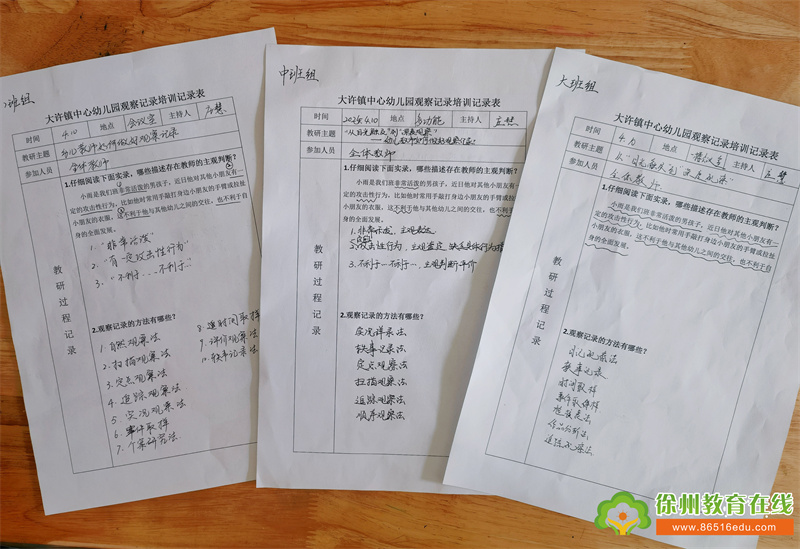 班组
大许镇中心幼儿园观察记录培训记录表
时间 4.10 地点 会议室 主持人 应慧
教研主题 幼儿教师如何做好观察记录
参加人员 全体教师
1.仔细阅读下面实录，哪些描述存在教师的主观判断？
小雨是我们班非常活泼的男孩子，近日他对其他小朋友有一定的攻击性行为，比如他时常用手敲打身边小朋友的手臂或拉扯小朋友的衣服，这不利于他与其他幼儿之间的交往，也不利于自身的全面发展。
1."非常活泼"
2."有一定攻击性行为"
3."不利于...不利于..."
教研过程记录
2.观察记录的方法有哪些？
1.自然观察法
2.扫描观察法
3.定点观察法
4.追踪观察法
5.实况观察法
6.事件取样
7.个案研究法
8.时间取样
9.评价观察法
10.轶事记录法
中班组
大许镇中心幼儿园观察记录培训记录表
时间 2025.4.10 地点 多功能 主持人 应慧
教研主题
参加人员 全体教师
1.仔细阅读下面实录，哪些描述存在教师的主观判断？
小雨是我们班非常活泼的男孩子，近日他对其他小朋友有一定的攻击性行为，比如他时常用手敲打身边小朋友的手臂或拉扯小朋友的衣服，这不利于他与其他幼儿之间的交往，也不利于自身的全面发展。
1.非常活泼，主观表达
2.攻击性行为，主观
3.不利于…不利于…，主观判断评价
教研过程记录
2.观察记录的方法有哪些？
实况详录法
轶事记录法
定点观察法
扫描观察法
追踪观察法
顺序观察法
大班组
大许镇中心幼儿园观察记录培训记录表
时间 地点 主持人 应慧
教研主题
参加人员 全体教师
1.仔细阅读下面实录，哪些描述存在教师的主观判断？
小雨是我们班非常活泼的男孩子，近日他对其他小朋友有一定的攻击性行为，比如他时常用手敲打身边小朋友的手臂或拉扯小朋友的衣服，这不利于他与其他幼儿之间的交往，也不利于自身的全面发展。
教研过程记录
2.观察记录的方法有哪些？
轶事记录
时间取样
事件取样
作品分析法
追踪观察法
徐州教育在线
www.86516edu.com